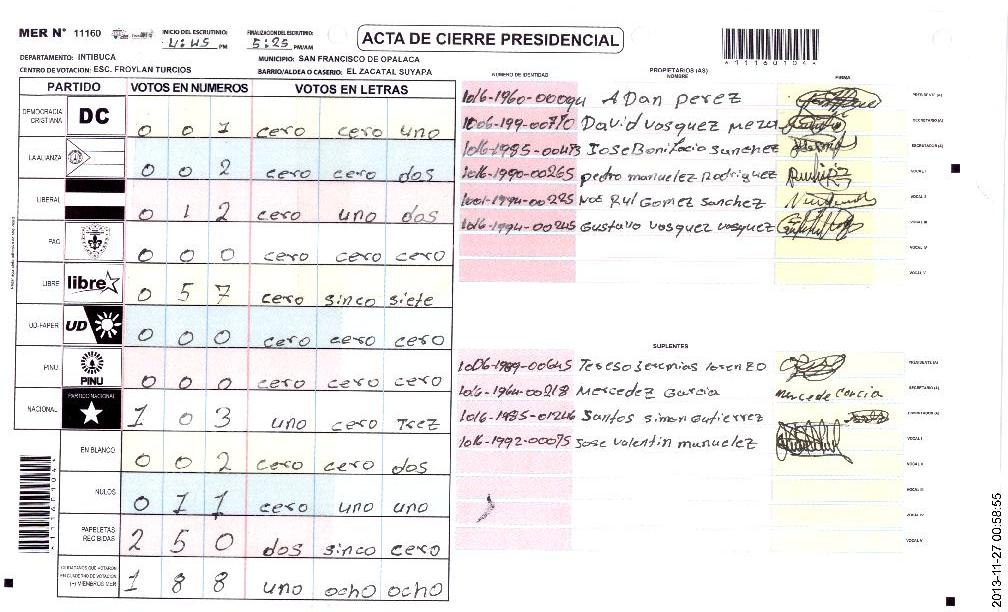 MER Nº 11160
INICIO DEL ESCRUTINIO: 4:45 PM
FINALIZACION DEL ESCRUTINIO: 5:25 PM/AM
ACTA DE CIERRE PRESIDENCIAL
DEPARTAMENTO: INTIBUCA
MUNICIPIO: SAN FRANCISCO DE OPALACA
CENTRO DE VOTACION: ESC. FROYLAN TURCIOS
BARRIO/ALDEA O CASERIO: EL ZACATAL SUYAPA
PARTIDO VOTOS EN NUMEROS VOTOS EN LETRAS
DEMOCRACIA CRISTIANA DC 0 0 1 cero cero uno
LA ALIANZA 0 0 2 cero cero dos
LIBERAL 0 1 2 cero uno dos
PAC 0 0 0 cero cero cero
LIBRE libre 0 5 7 cero sinco siete
UD-FAPER UD 0 0 0 cero cero cero
PINU PINU 0 0 0 cero cero cero
NACIONAL PARTIDO NACIONAL 1 0 3 uno cero Trez
EN BLANCO 0 0 2 cero cero dos
NULOS 0 1 1 cero uno uno
PAPELETAS RECIBIDAS 2 5 0 dos sinco cero
CIUDADANOS QUE VOTARON EN CUADERNO DE VOTACION (+) MIEMBROS MER 1 8 8 uno ocho ocho
NUMERO DE IDENTIDAD PROPIETARIOS (AS) NOMBRE FIRMA
ADan perez PRESIDENTE (A)
David vosquez meza SECRETARIO (A)
Jose Bonifacio sanchez ESCRUTADOR (A)
1016-1990-00265 pedro manuelez Rodriguez VOCAL I
Gomez sanchez VOCAL II
1016-1994-00245 Gustavo vosquez vosquez VOCAL III
VOCAL IV
VOCAL V
SUPLENTES
1006-1989-00645 lorenzo PRESIDENTE (A)
1016-1964-00218 Mercedez Garcia SECRETARIO (A)
1016-1985-01246 Santos simon Gutierrez ESCRUTADOR (A)
1016-1992-00075 Jose valentin manuelez VOCAL I
VOCAL II
VOCAL III
VOCAL IV
VOCAL V
2013-11-27 00:58:55